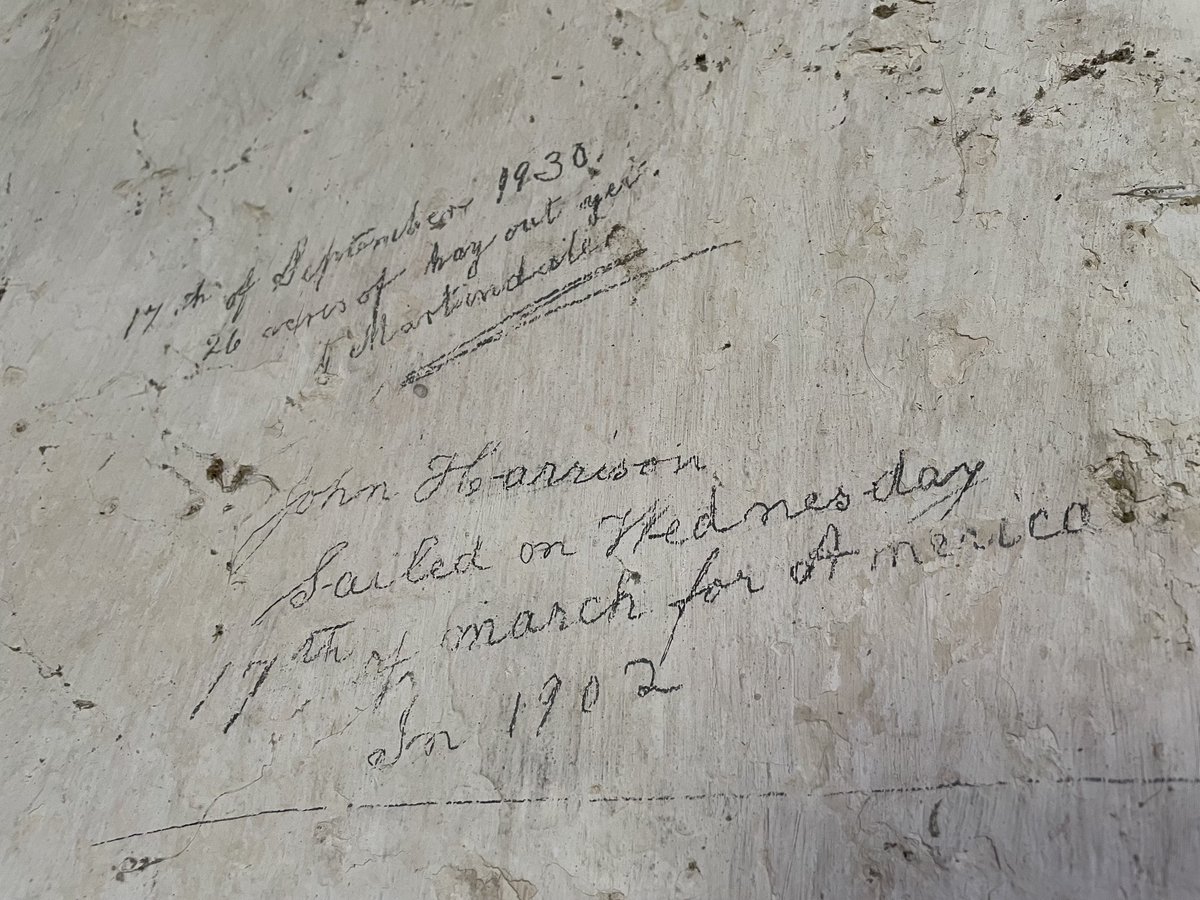 17.th of September 1930.
26 acres of hay out yet.
J Martindale
John Harrison
Sailed on Wednesday
17th of march for America
In 1902